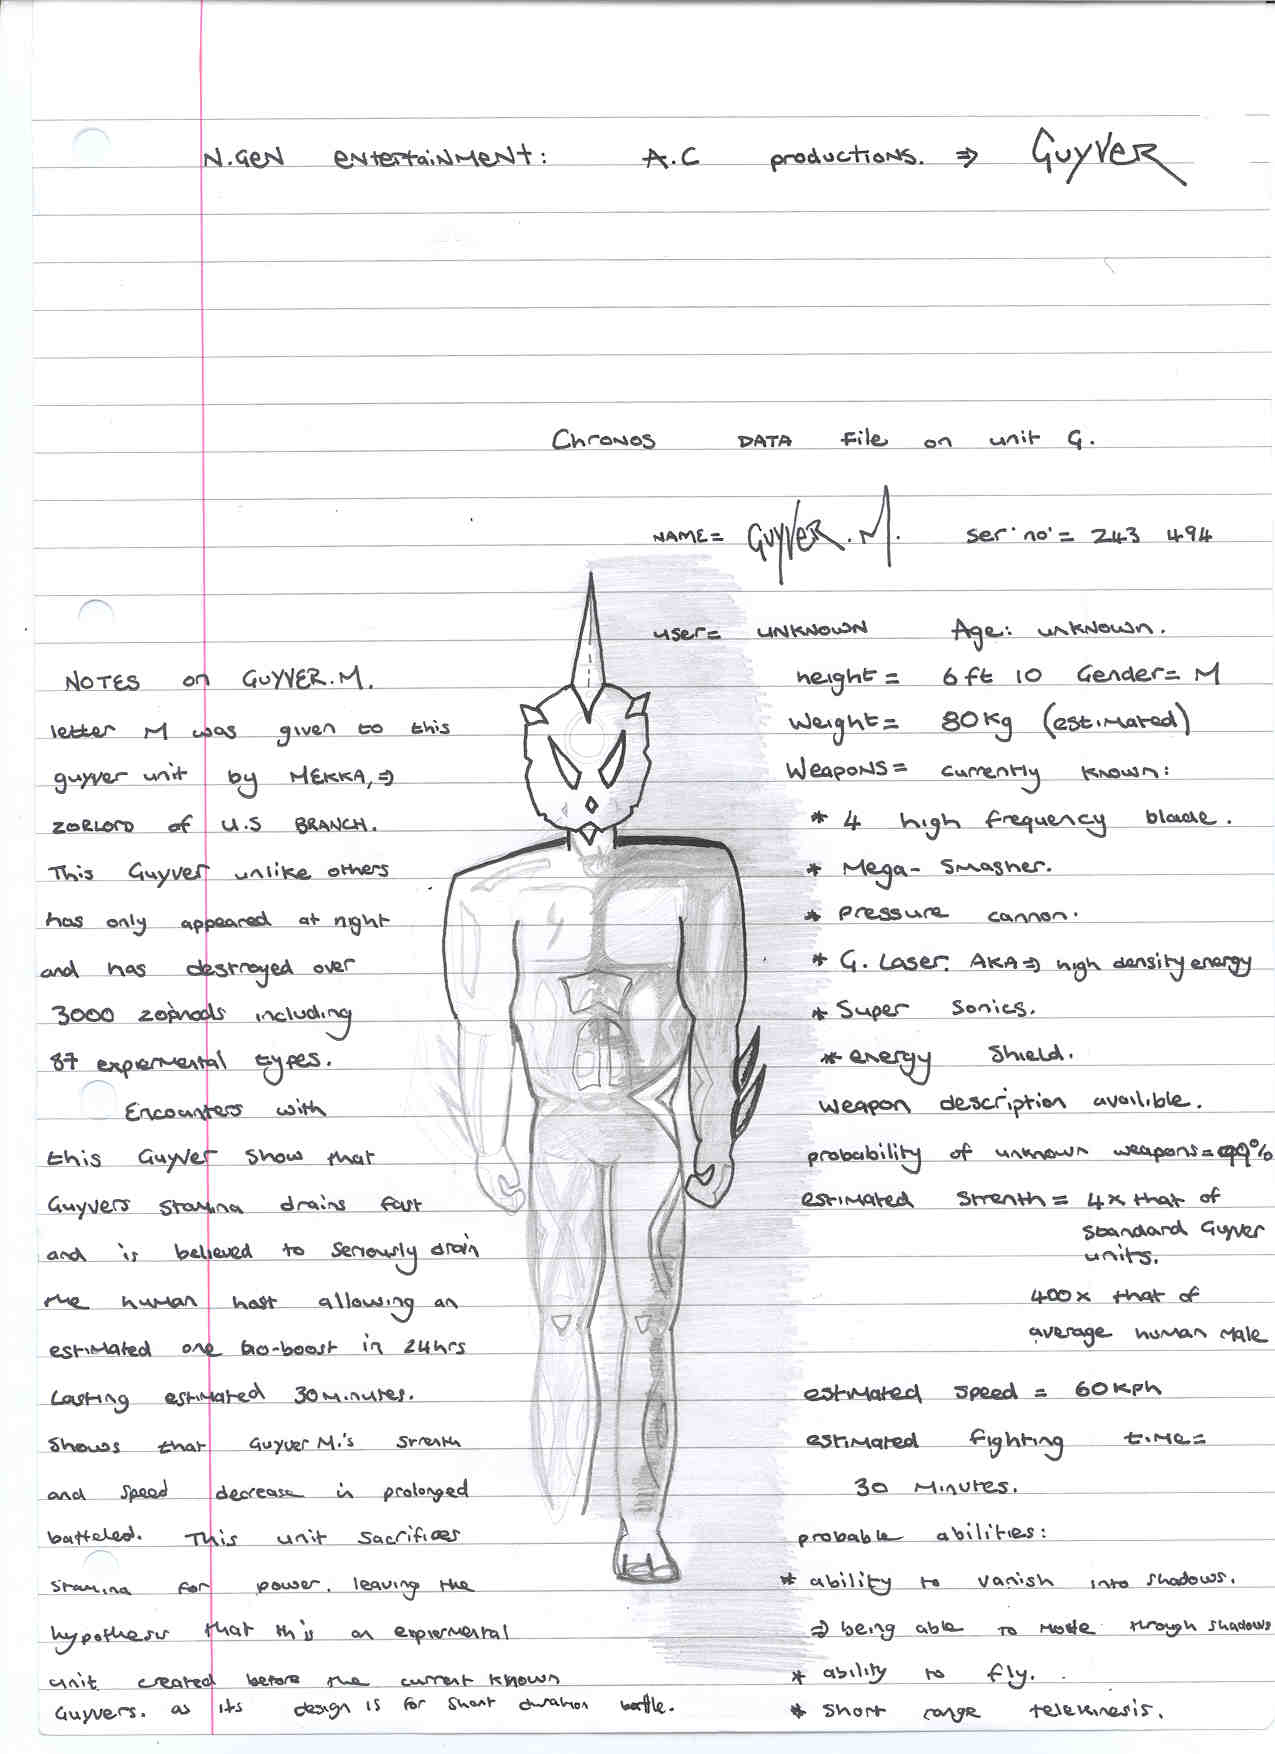 N.GEN ENTERTAINMENT: A.C PRODUCTIONS. ⇒ GUYVER
Chronos DATA File on unit G.
NAME= GUYVER.M. ser' no' = 243 494
user= UNKNOWN Age: unknown.
height = 6ft 10 Gender= M
Weight= 80Kg (estimated)
Weapons= currently known:
* 4 high frequency blade.
* Mega-Smasher.
* Pressure cannon.
* G. Laser. AKA⇒ high density energy
* Super Sonics.
* energy Shield.
weapon description availible.
probability of unknown weapons=99%
estimated Strenth = 4x that of
standard Guyver
units.
400x that of
average human male
estimated speed = 60kph
estimated fighting time=
30 Minutes.
probable abilities:
* ability to vanish into shadows.
⇒ being able to move through shadows
* ability to fly.
* Short range telekinesis.
NOTES on GUYVER.M.
letter M was given to this
guyver unit by MEKKA,⇒
ZORLORD of U.S BRANCH.
This Guyver unlike others
has only appeared at night
and has destroyed over
3000 zoanoids including
87 expiermental types.
Encounters with
this Guyver show that
Guyvers stamina drains fast
and is believed to seriously drain
the human host allowing an
estimated one bio-boost in 24hrs
Lasting estimated 30 minutes.
Shows that Guyver M.'s strenth
and speed decrease in prolonged
batteled. This unit sacrifices
stamina for power. leaving the
hypothesis that this an expiermental
unit created before the current known
Guyvers. as its design is for short duration battle.